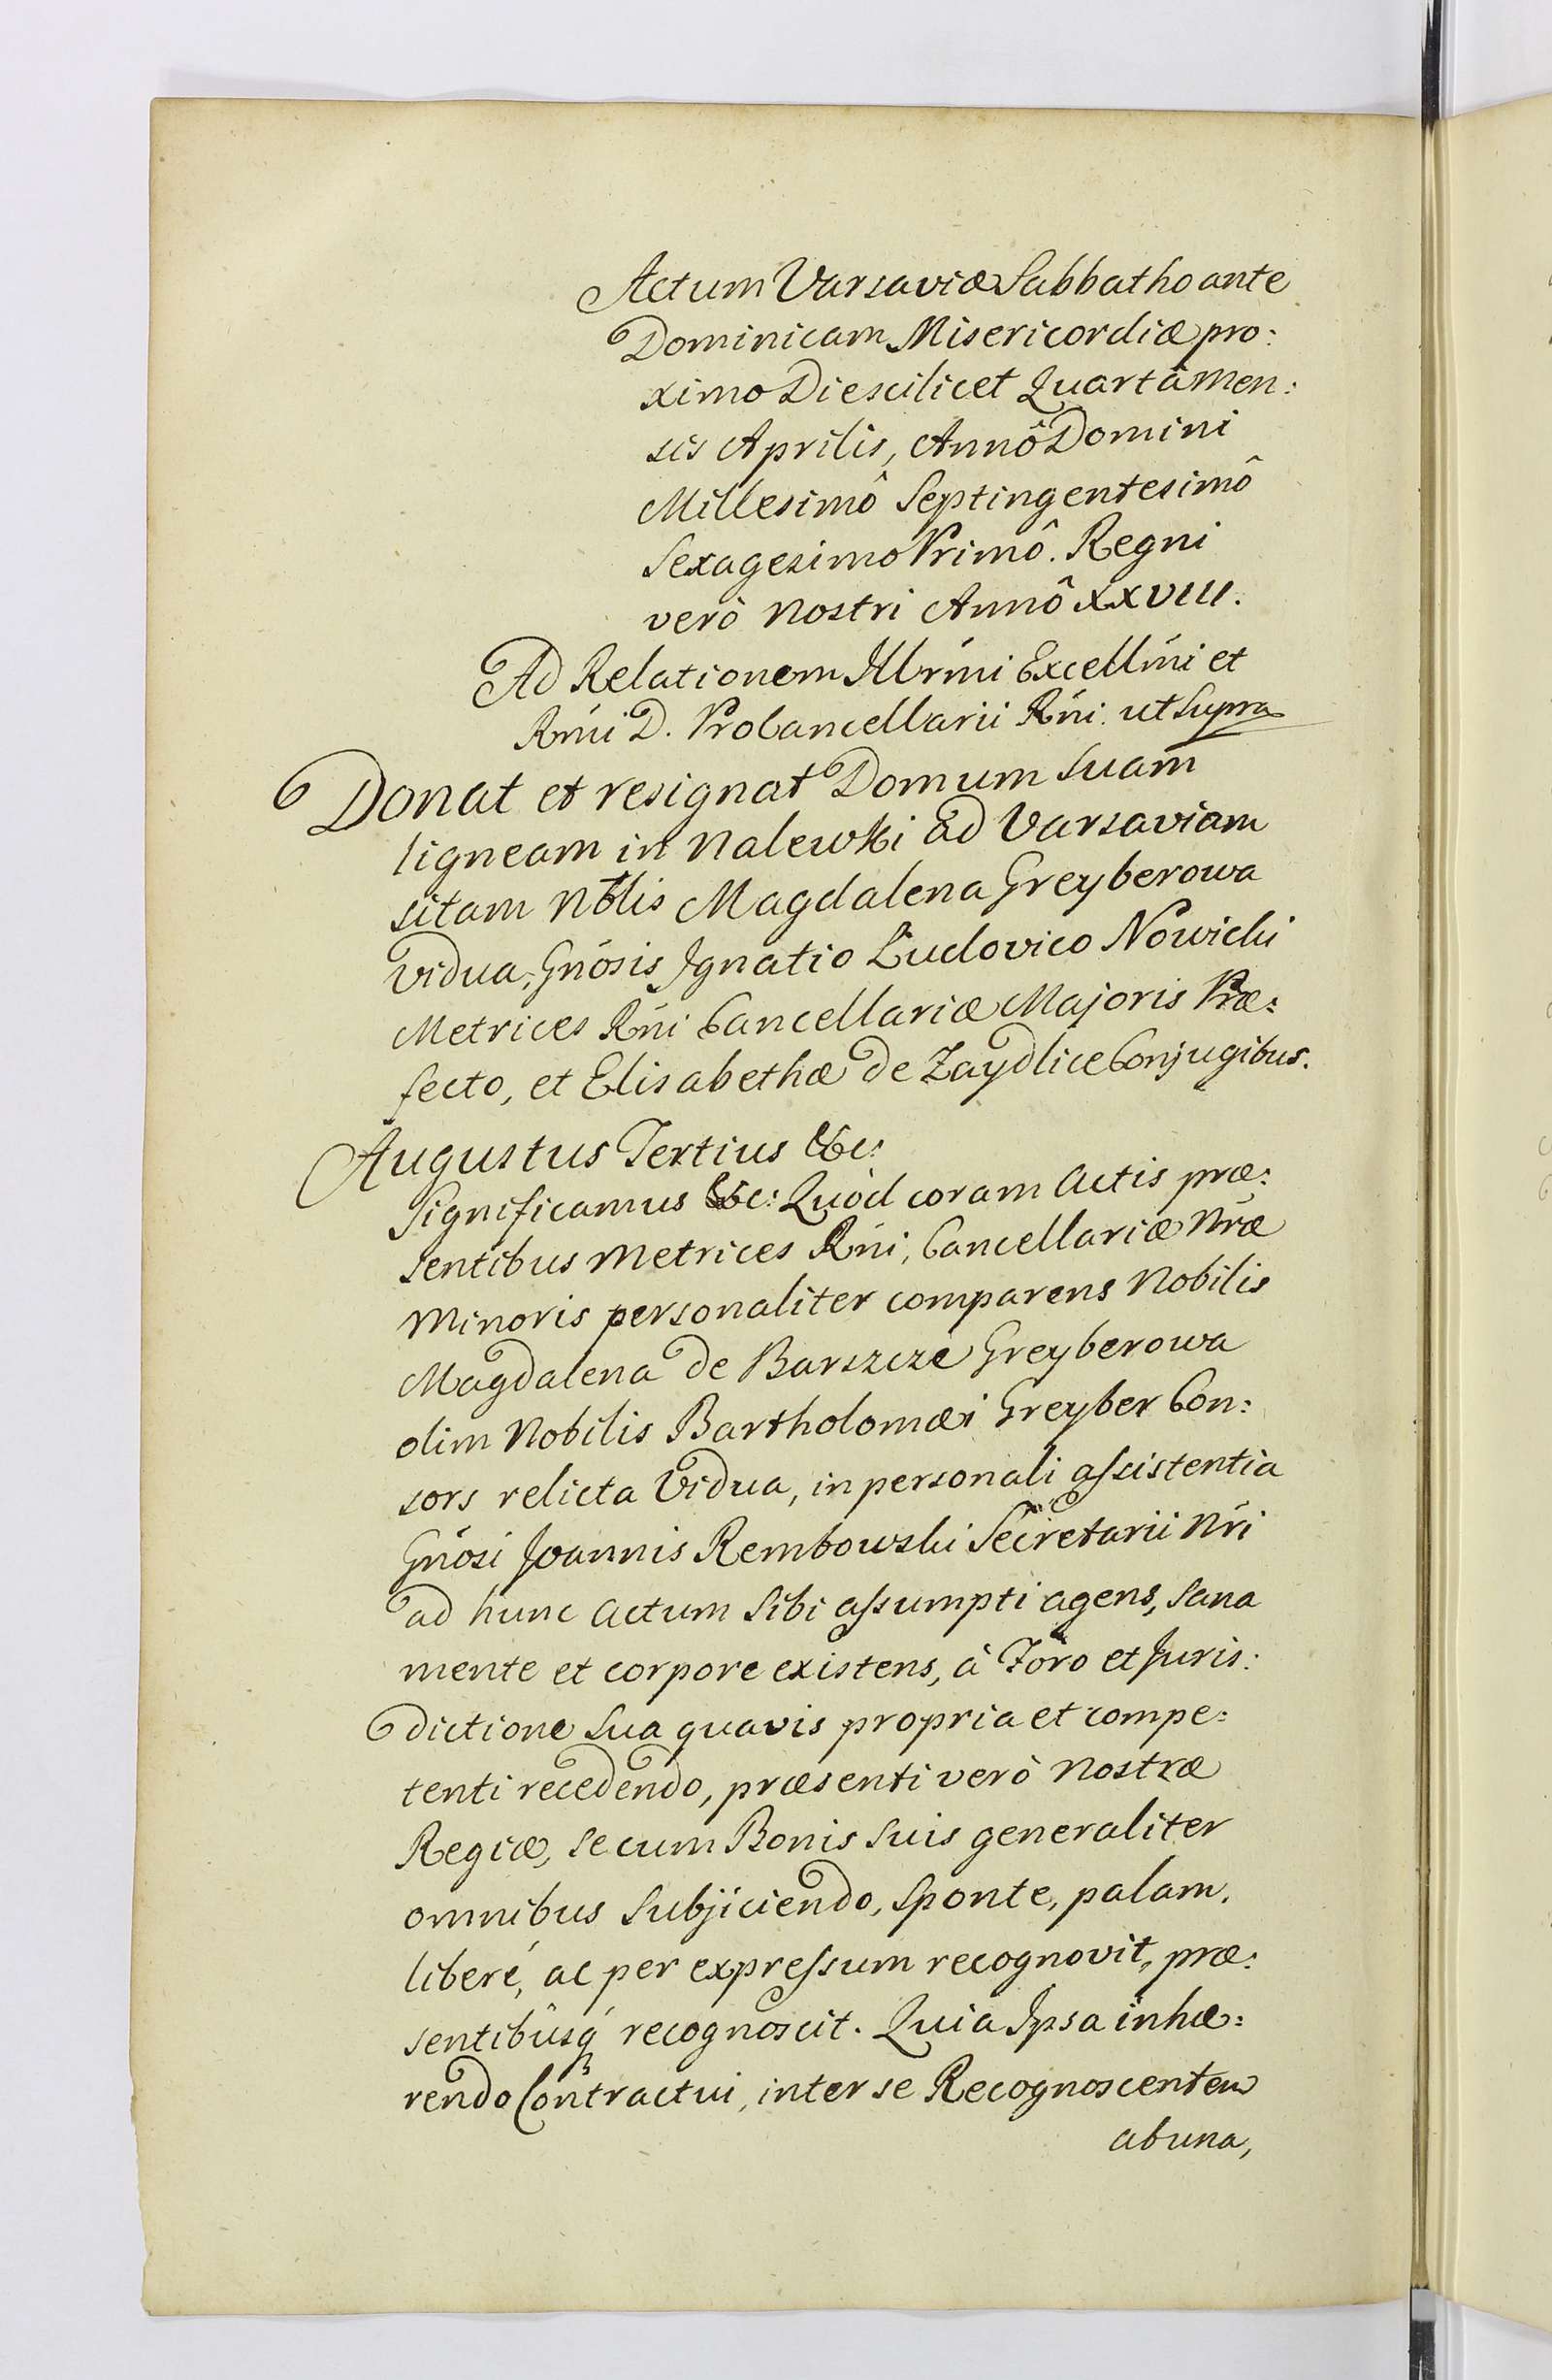 Actum Varsaviæ Sabbatho ante
Dominicam Misericordiæ pro:
ximo Die scilicet Quartâ Men:
sis Aprilis, Annô Domini
Millesimô Septingentesimô
Sexagesimo Primô. Regni
verò Nostri Annô XXVIII.
Ad Relationem Illrmi Excellmi et
Rmi D. ProCancellarii Rni ut Supra
Donat et resignat Domum Suam
ligneam in Nalewki ad Varsaviam
sitam Nblis Magdalena Greyberowa
Vidua, Gnosis Ignatio Ludovico Nowicki
Metrices Rni Cancellariæ Majoris Præ:
fecto, et Elisabethæ de Zaydlice Conjugibus.
Augustus Tertius &c:
Significamus &c: Quòd coram Actis præ:
sentibus Metrices Rni, Cancellariæ Nræ
Minoris personaliter comparens Nobilis
Magdalena de Barszcze Greyberowa
olim Nobilis Bartholomæi Greyber Con:
sors relicta Vidua, in personali assistentia
Gnosi Joannis Rembowski Secretarii Nri
ad hunc Actum Sibi assumpti agens, Sana
mente et corpore existens, à Foro et Juris:
dictione Sua quavis propria et compe:
tenti recedendo, præsenti verò Nostræ
Regiæ, se cum Bonis Suis generaliter
omnibus Subjiciendo, Sponte, palam,
liberé, ac per expressum recognovit, præ:
sentibusq́ recognoscit. Quia Ipsa inhæ:
rendo Contractui, inter se Recognoscentem
ab una,